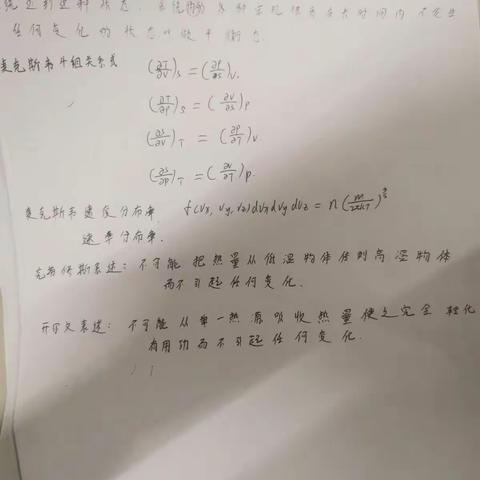 统达到这种状态. 系统的各种宏观性质在长时间内不发生
任何变化的状态叫做平衡态.
麦克斯韦4组关系式 (∂T/∂V)s = (∂P/∂s)v.
(∂T/∂p)s = (∂V/∂s)p
(∂s/∂v)T = (∂p/∂T)v.
(∂s/∂p)T = (∂v/∂T)p.
麦克斯韦速度分布率. f(vx, vy, vz)dvxdvydvz = n(m/2πkT)^3/2
速率分布率.
克劳修斯表述: 不可能把热量从低温物体传到高温物体
而不引起任何变化.
开尔文表述: 不可能从单一热源吸收热量使之完全转化
有用功而不引起任何变化.